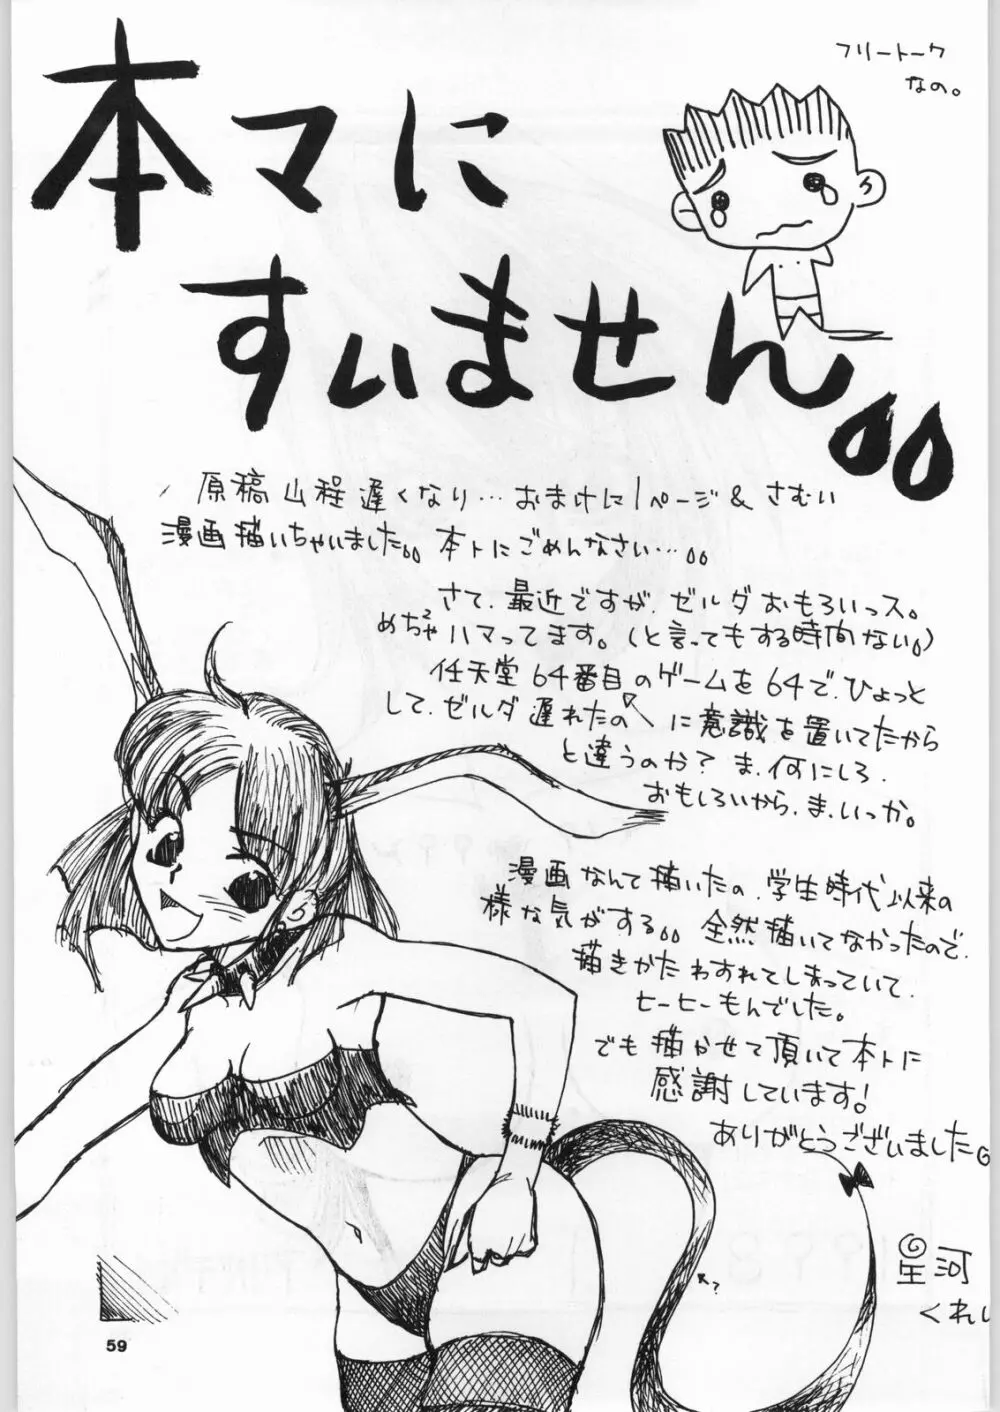 フリートーク
なの。
本マに
すいません。。
原稿山程遅くなり…おまけに1ページ&さむい
漫画描いちゃいました。。本トにごめんなさい…。。
さて、最近ですが、ゼルダおもろいっス。
めちゃ2ハマってます。(と言ってもする時間ない。)
任天堂64番目のゲームを64で、ひょっと
して、ゼルダ遅れたの に意識を置いてたから
と違うのか?ま、何にしろ、
おもしろいから、ま、いっか。
漫画なんて描いたの、学生時代以来の
様な気がする。。全然描いてなかったので、
描きかたわすれてしまっていて、
ヒーヒーもんでした。
でも描かせて頂いて本トに
感謝しています!
ありがとうございました。
?
星河
くれい
59